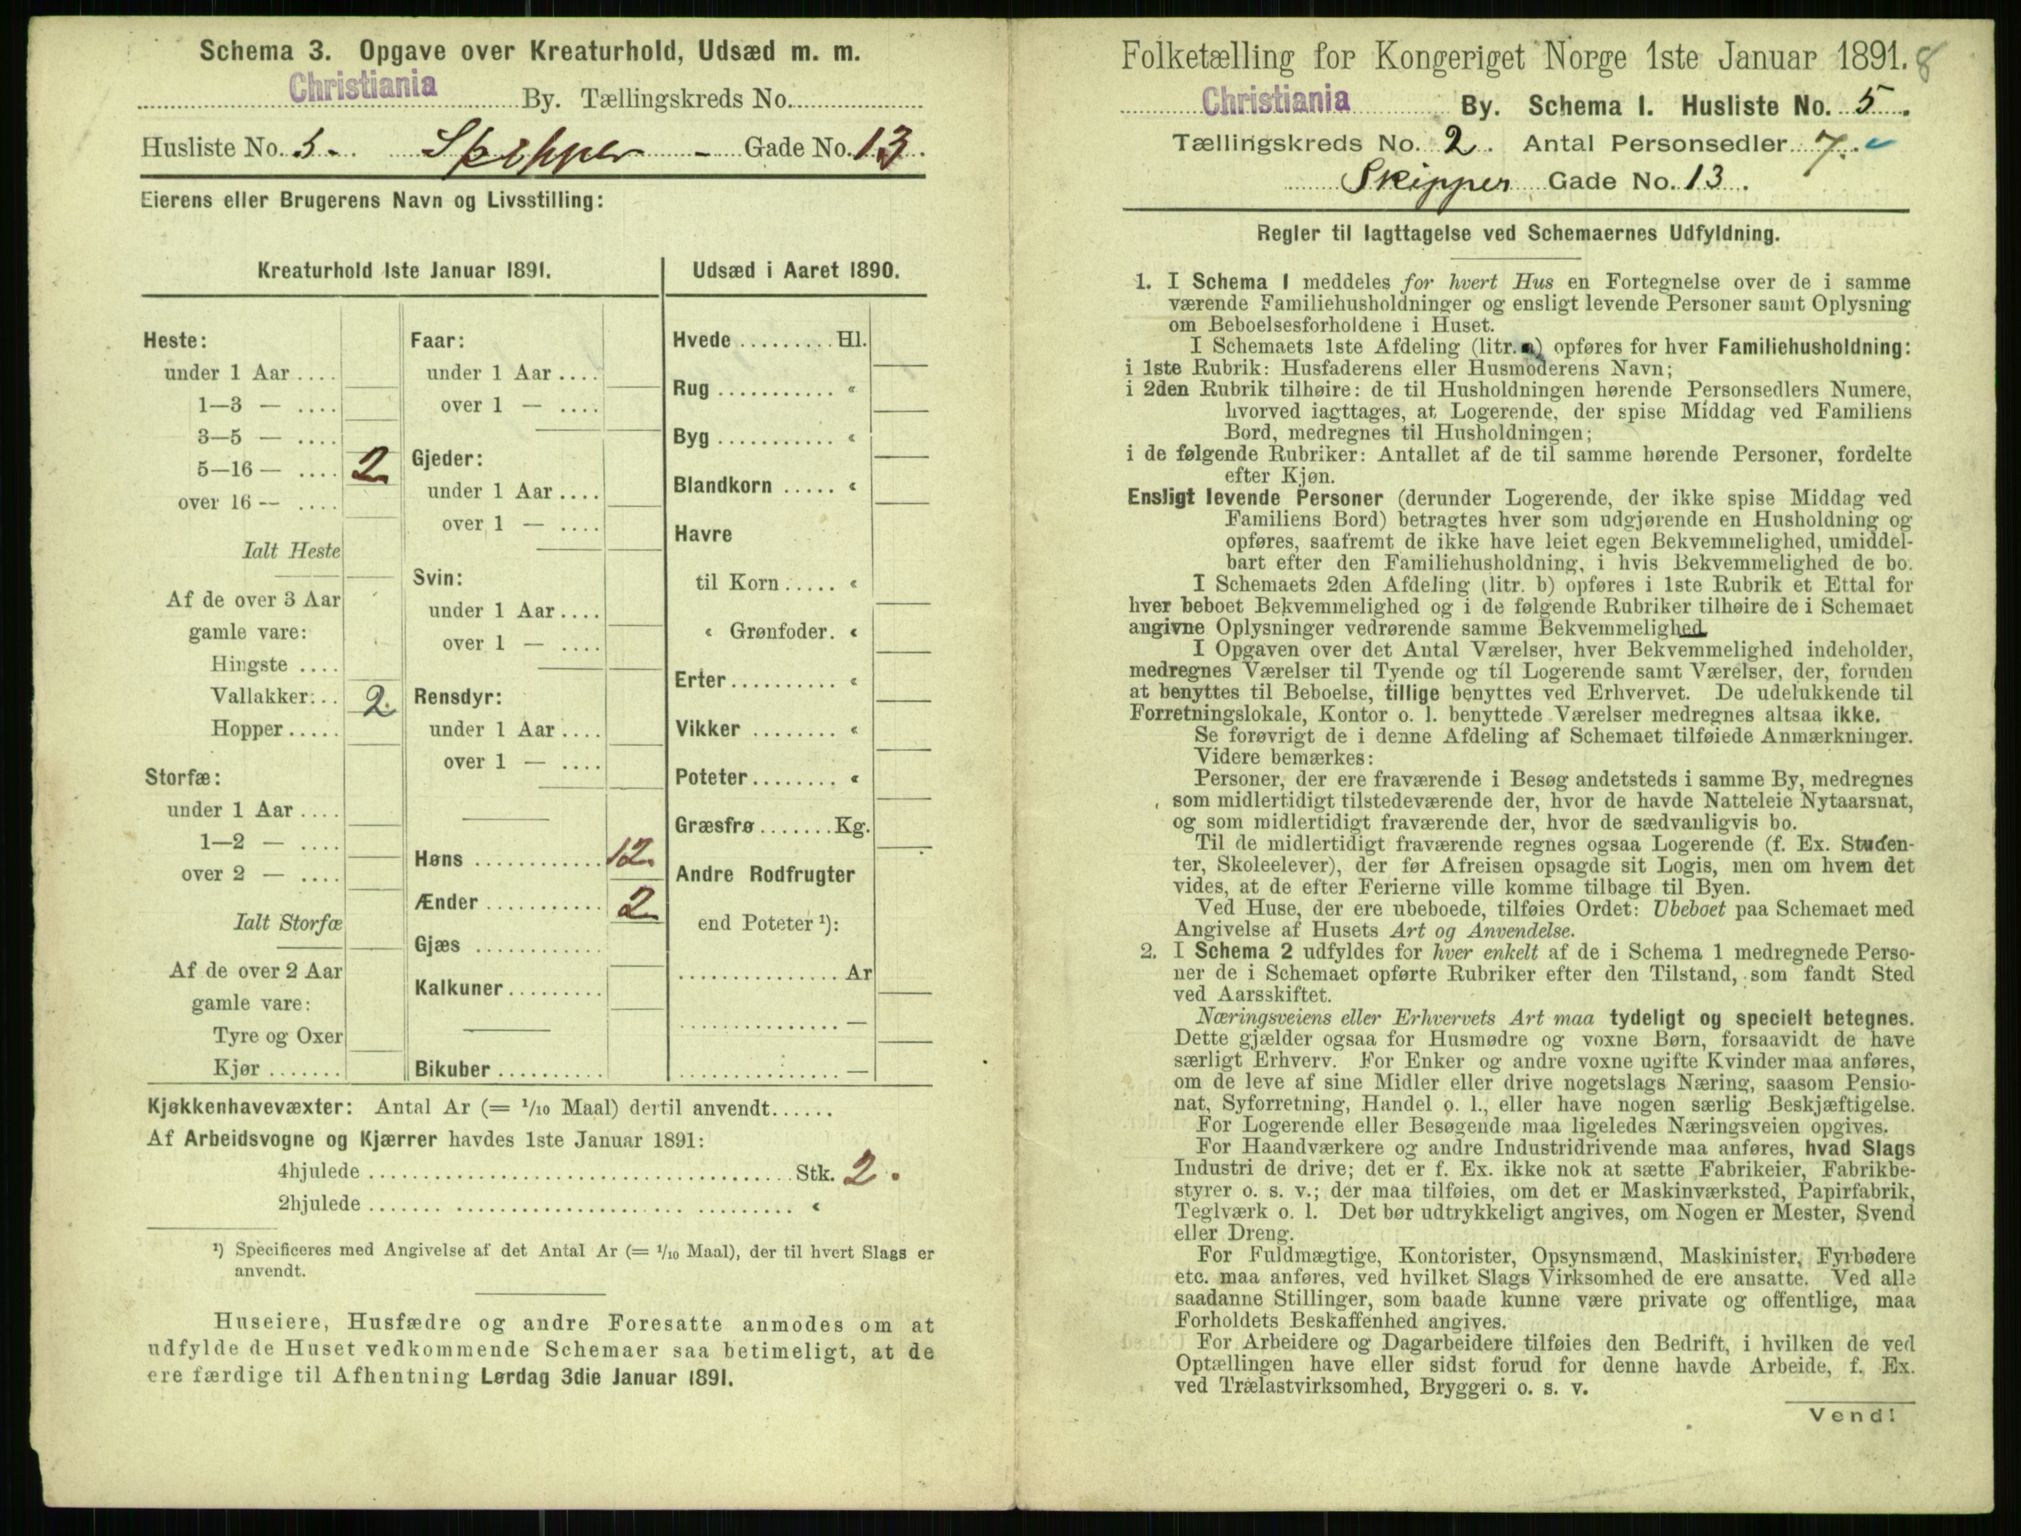 Schema 3. Opgave over Kreaturhold, Udsæd m. m.
Christiania By. Tællingskreds No.
Husliste No. 5 Skipper Gade No. 13.
Eierens eller Brugerens Navn og Livsstilling:
Kreaturhold 1ste Januar 1891.
Heste:
under 1 Aar ....
1—3 — ....
3—5 — ....
5—16 — .... 2
over 16 — ....
Ialt Heste
Af de over 3 Aar
gamle vare:
Hingste ....
Vallakker... 2.
Hopper.....
Storfæ:
under 1 Aar ....
1—2 — ....
over 2 — ....
Ialt Storfæ
Af de over 2 Aar
gamle vare:
Tyre og Oxer
Kjør .......
Faar:
under 1 Aar ....
over 1 — ....
Gjeder:
under 1 Aar ....
over 1 — ....
Svin:
under 1 Aar ....
over 1 — ....
Rensdyr:
under 1 Aar ....
over 1 — ....
Høns ............ 12
Ænder ........... 2
Gjæs ............
Kalkuner.........
Bikuber ..........
Udsæd i Aaret 1890.
Hvede ......... Hl.
Rug ........... «
Byg ........... «
Blandkorn ..... «
Havre
til Korn ..... «
« Grønfoder. «
Erter.......... «
Vikker ........ «
Poteter........ «
Græsfrø ....... Kg.
Andre Rodfrugter
end Poteter ¹):
............... Ar
............... —
............... —
Kjøkkenhavevæxter: Antal Ar (= 1/10 Maal) dertil anvendt......
Af Arbeidsvogne og Kjærrer havdes 1ste Januar 1891:
4hjulede ........................ Stk. 2.
2hjulede ........................ «
¹) Specificeres med Angivelse af det Antal Ar (= 1/10 Maal), der til hvert Slags er
anvendt.
Huseiere, Husfædre og andre Foresatte anmodes om at
udfylde de Huset vedkommende Schemaer saa betimeligt, at de
ere færdige til Afhentning Lørdag 3die Januar 1891.
Folketælling for Kongeriget Norge 1ste Januar 1891. 8
Christiania By. Schema I. Husliste No. 5.
Tællingskreds No. 2. Antal Personsedler 7.
Skipper Gade No. 13.
Regler til Iagttagelse ved Schemaernes Udfyldning.
1. I Schema 1 meddeles for hvert Hus en Fortegnelse over de i samme
værende Familiehusholdninger og ensligt levende Personer samt Oplysning
om Beboelsesforholdene i Huset.
I Schemaets 1ste Afdeling (litr. a) opføres for hver Familiehusholdning:
i 1ste Rubrik: Husfaderens eller Husmoderens Navn;
i 2den Rubrik tilhøire: de til Husholdningen hørende Personsedlers Numere,
hvorved iagttages, at Logerende, der spise Middag ved Familiens
Bord, medregnes til Husholdningen;
i de følgende Rubriker: Antallet af de til samme hørende Personer, fordelte
efter Kjøn.
Ensligt levende Personer (derunder Logerende, der ikke spise Middag ved
Familiens Bord) betragtes hver som udgjørende en Husholdning og
opføres, saafremt de ikke have leiet egen Bekvemmelighed, umiddel-
bart efter den Familiehusholdning, i hvis Bekvemmelighed de bo.
I Schemaets 2den Afdeling (litr. b) opføres i 1ste Rubrik et Ettal for
hver beboet Bekvemmelighed og i de følgende Rubriker tilhøire de i Schemaet
angivne Oplysninger vedrørende samme Bekvemmelighed.
I Opgaven over det Antal Værelser, hver Bekvemmelighed indeholder,
medregnes Værelser til Tyende og til Logerende samt Værelser, der, foruden
at benyttes til Beboelse, tillige benyttes ved Erhvervet. De udelukkende til
Forretningslokale, Kontor o. l. benyttede Værelser medregnes altsaa ikke.
Se forøvrigt de i denne Afdeling af Schemaet tilføiede Anmærkninger.
Videre bemærkes:
Personer, der ere fraværende i Besøg andetsteds i samme By, medregnes
som midlertidigt tilstedeværende der, hvor de havde Natteleie Nytaarsnat,
og som midlertidigt fraværende der, hvor de sædvanligvis bo.
Til de midlertidigt fraværende regnes ogsaa Logerende (f. Ex. Studen-
ter, Skoleelever), der før Afreisen opsagde sit Logis, men om hvem det
vides, at de efter Ferierne ville komme tilbage til Byen.
Ved Huse, der ere ubeboede, tilføies Ordet: Ubeboet paa Schemaet med
Angivelse af Husets Art og Anvendelse.
2. I Schema 2 udfyldes for hver enkelt af de i Schema 1 medregnede Perso-
ner de i Schemaet opførte Rubriker efter den Tilstand, som fandt Sted
ved Aarsskiftet.
Næringsveiens eller Erhvervets Art maa tydeligt og specielt betegnes.
Dette gjælder ogsaa for Husmødre og voxne Børn, forsaavidt de have
særligt Erhverv. For Enker og andre voxne ugifte Kvinder maa anføres,
om de leve af sine Midler eller drive nogetslags Næring, saasom Pensio-
nat, Syforretning, Handel o. l., eller have nogen særlig Beskjæftigelse.
For Logerende eller Besøgende maa ligeledes Næringsveien opgives.
For Haandværkere og andre Industridrivende maa anføres, hvad Slags
Industri de drive; det er f. Ex. ikke nok at sætte Fabrikeier, Fabrikbe-
styrer o. s. v.; der maa tilføies, om det er Maskinværksted, Papirfabrik,
Teglværk o. l. Det bør udtrykkeligt angives, om Nogen er Mester, Svend
eller Dreng.
For Fuldmægtige, Kontorister, Opsynsmænd, Maskinister, Fyrbødere
etc. maa anføres, ved hvilket Slags Virksomhed de ere ansatte. Ved alle
saadanne Stillinger, som baade kunne være private og offentlige, maa
Forholdets Beskaffenhed angives.
For Arbeidere og Dagarbeidere tilføies den Bedrift, i hvilken de ved
Optællingen have eller sidst forud for denne havde Arbeide, f. Ex.
ved Trælastvirksomhed, Bryggeri o. s. v.
Vend!